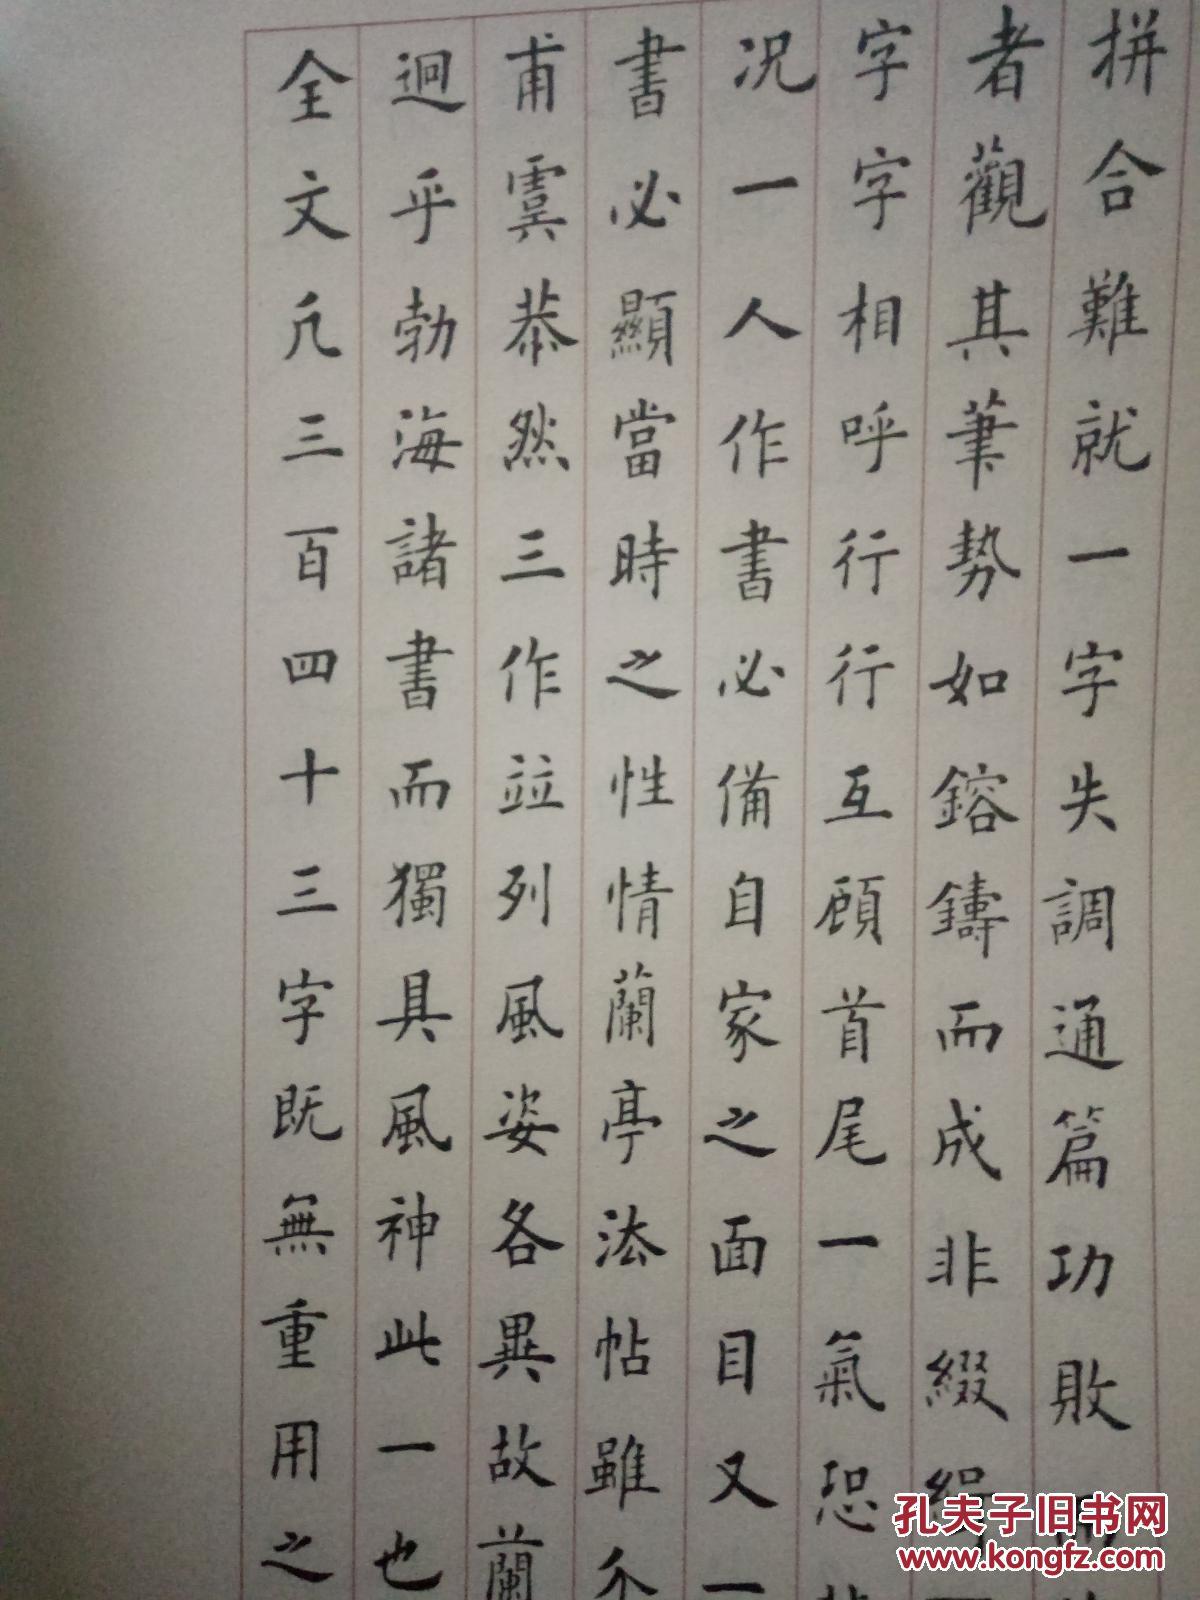 拼合難就一字失調通篇功敗
者觀其筆勢如鎔鑄而成非綴緝
字字相呼行行互顧首尾一氣恐
況一人作書必備自家之面目又一
書必顯當時之性情蘭亭法帖雖
甫虞恭然三作竝列風姿各異故蘭
迥乎勃海諸書而獨具風神此一也
全文凡三百四十三字既無重用之
孔夫子旧书网
www.kongfz.com